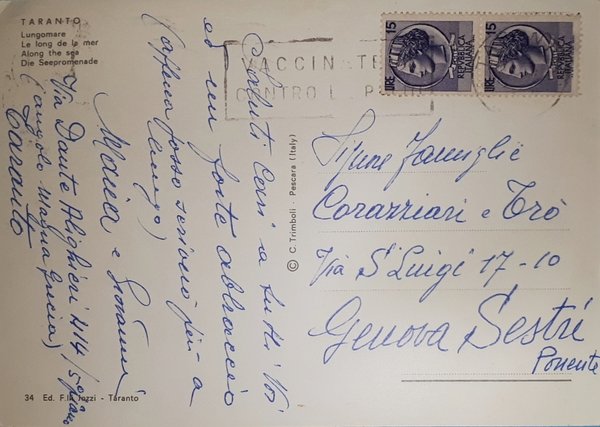 TARANTO
Lungomare
Le long de la mer
Along the sea
Die Seepromenade
VACCINATE
CONTRO LA POLIO
LIRE 15
REPUBBLICA ITALIANA
LIRE 15
REPUBBLICA ITALIANA
Saluti Cari a tutti Voi
ed un forte abbraccio
(appena posso scriverò più a
lungo)
Maria e Giovanni
Via Dante Alighieri
(angolo Magna Grecia)
Taranto
© C. Trimboli - Pescara (Italy)
Famiglie
Corazziari e Trò
Via S. Luigi 17-10
Genova Sestri
Ponente
34 Ed. F.lli - Taranto